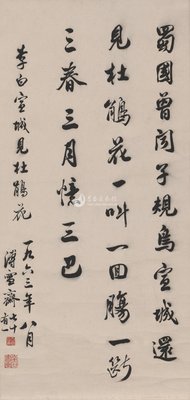 蜀國曾聞子規鳥宣城還
見杜鵑花一叫一回腸一斷
三春三月憶三巴
李白宣城見杜鵑花
一九六三年八月
溥雪齋七十有一